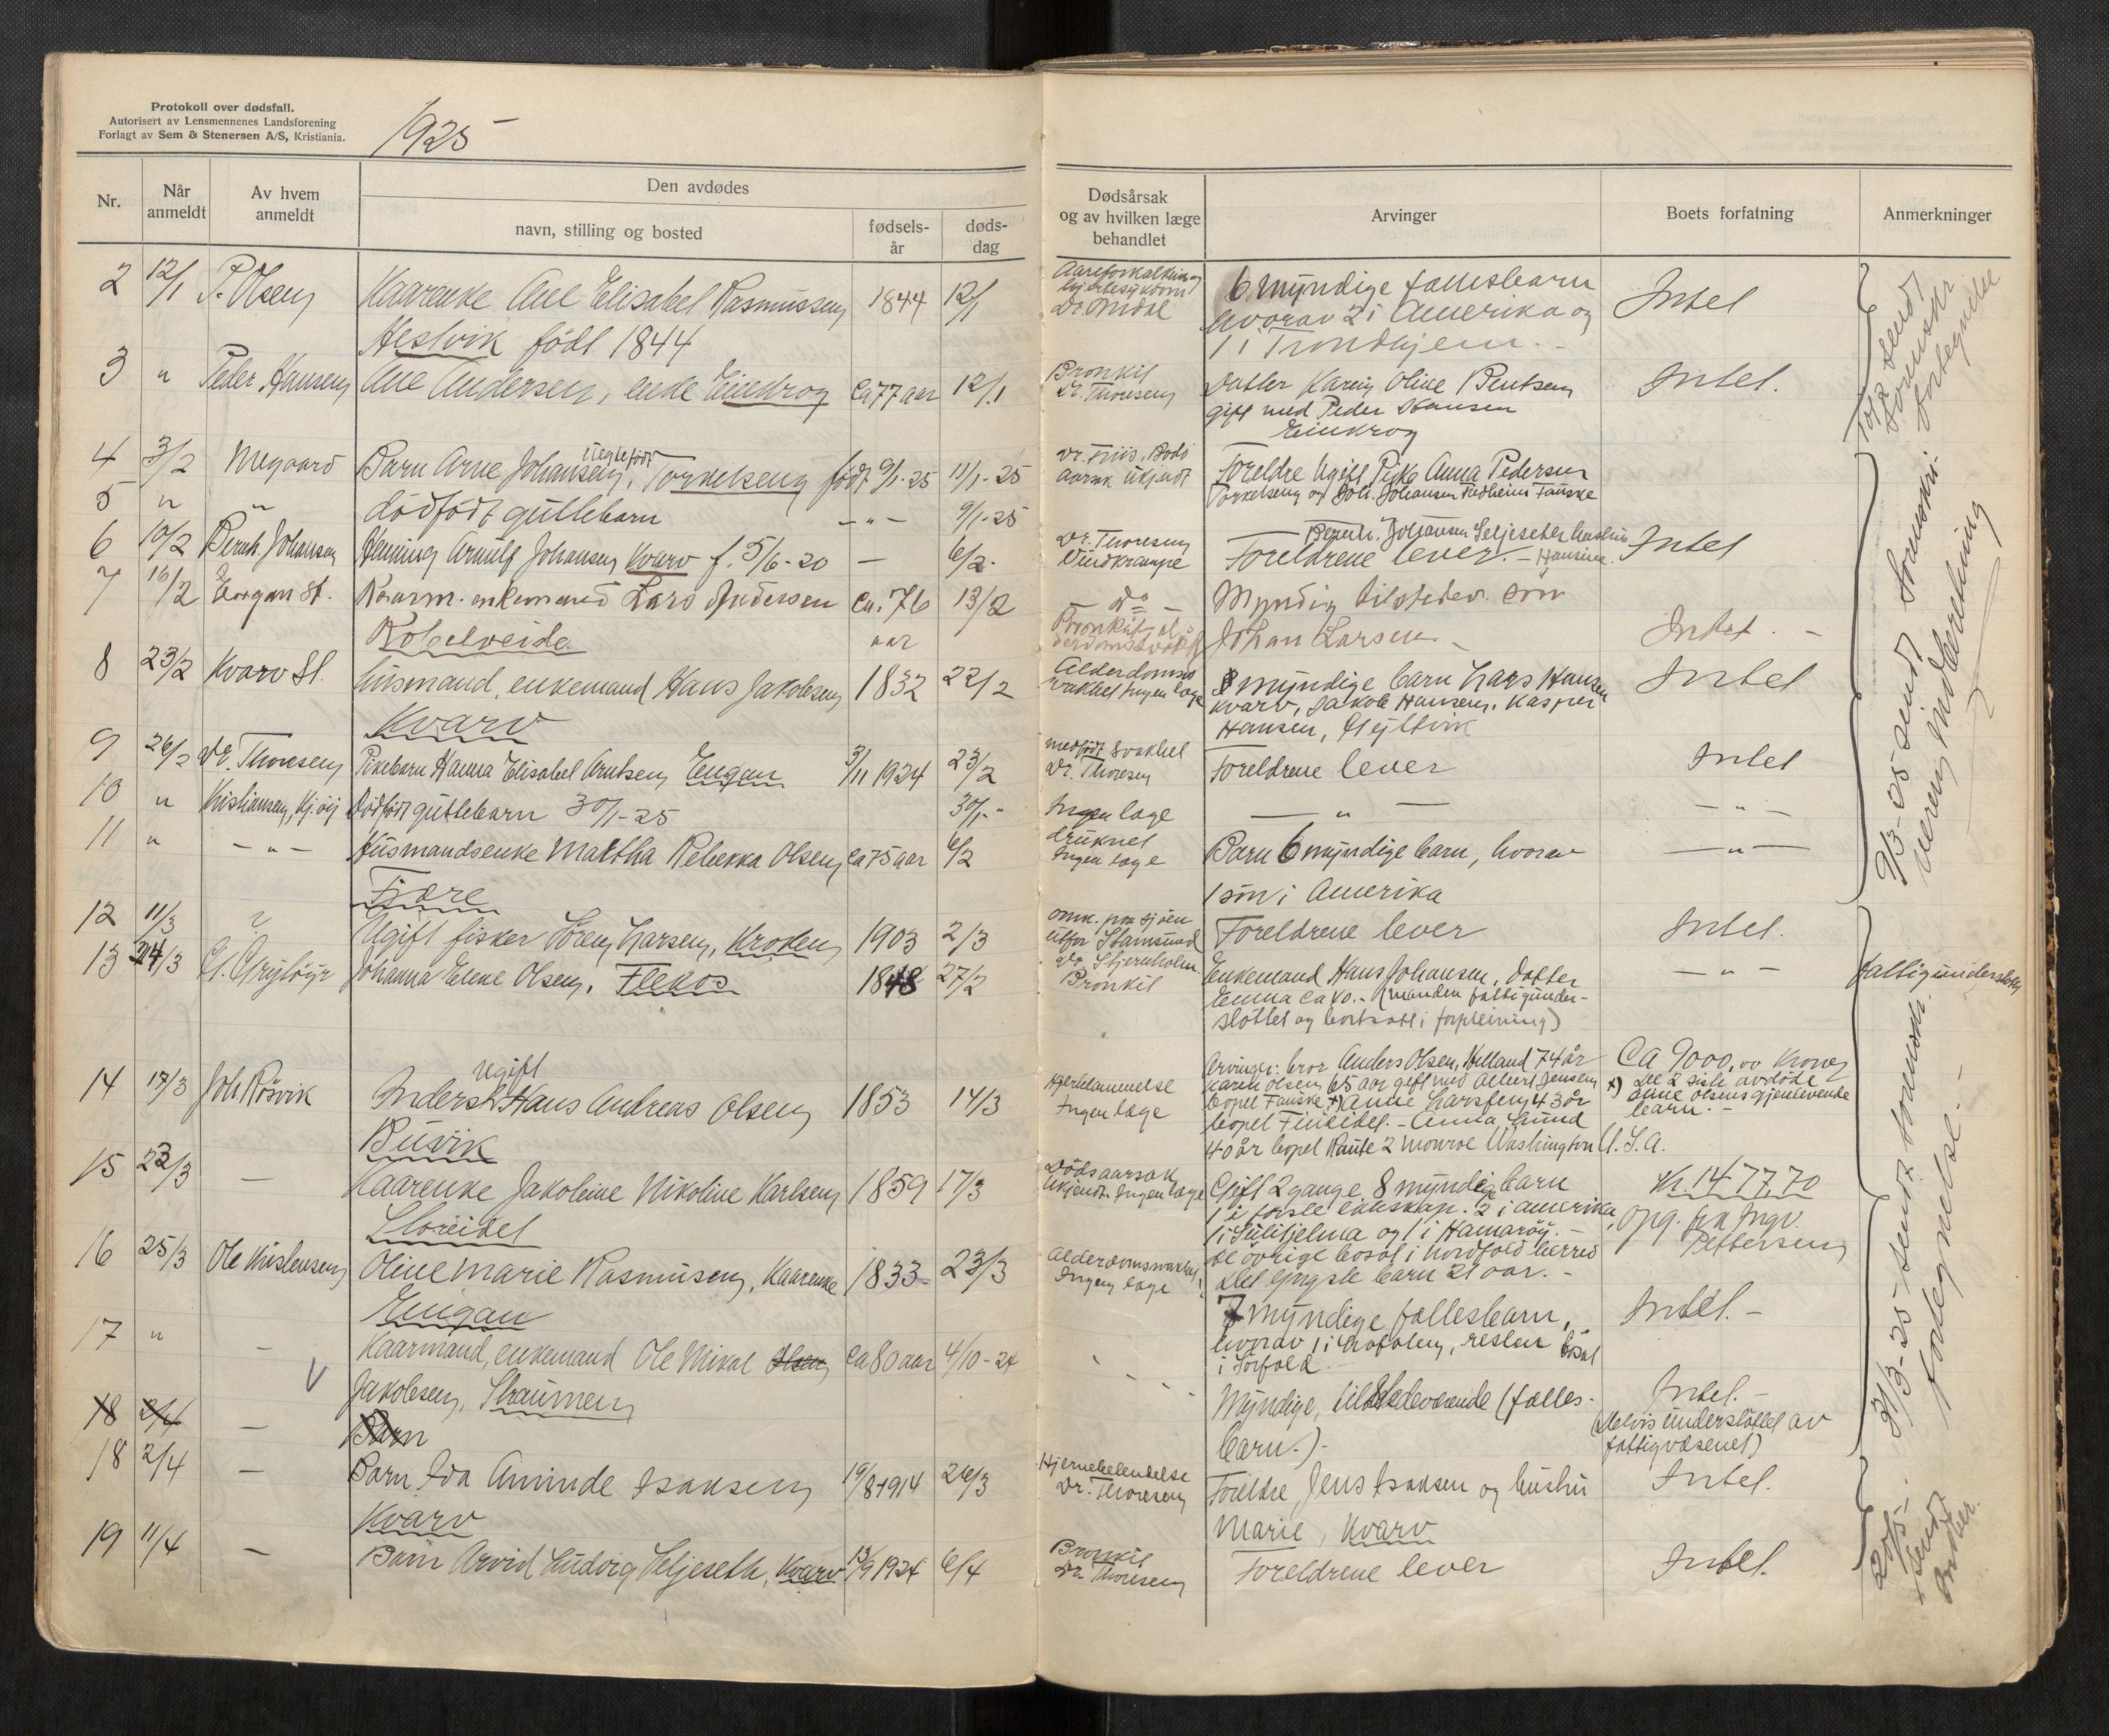 Protokoll over dødsfall.
Autorisert av Lensmennenes Landsforening
Forlagt av Sem & Stenersen A/S, Kristiania.
1925
Nr.
Når anmeldt
Av hvem anmeldt
Den avdødes
navn, stilling og bosted
fødsels-år
døds-dag
Dødsårsak og av hvilken læge behandlet
Arvinger
Boets forfatning
Anmerkninger
2 12/1 P. Olsen Kaarenke Ane Elisabet Rasmussen 1844 12/1
Hestvik födt 1844
Aareforkalkning
Dr. Midal
6 myndige fællesbarn
hvorav 2 i Amerika og
1 i Trondhjem.
Intet
3 " Peder Hansen Ane Andersen, enke Einkrog Ca 77 aar 12/1
Bronkit
Dr. Thoresen
Datter Karen Oline Bentsen
gift med Peder Hansen
Einkrog
Intet.
4 3/2 Barn Arne Johansen, uegtefödt Torkelseng födt 9/1-25 11/1-25
Dr. Friis, Bodö
aarsak ukjendt
Foreldre Ugift Pike Anna Pedersen
Torkelseng og Joh. Johansen Fauske
5 " " dödfödt guttebarn - " - 9/1-25
6 10/2 Bernh. Johansen Henning Arnulf Johansen Kvarv f. 5/6-20 — 6/2-
Dr. Thoresen
Vindkrampe
Bernh. Johansen Seljeseth
Foreldrene lever. - Hansine.
Intet
7 16/2 Engan St. Kaarm. enkemand Lars Andersen Ca. 76 aar 13/2
Kobelveide
- do -
Bronkit, alderdomssvakh.
Myndig tilstedev. sön
Johan Larsen.
Intet. -
8 23/2 Kvarv St. Husmand, enkemand Hans Jakobsen 1832 22/2
Kvarv
Alderdoms
svakhet Ingen læge
myndige barn Lars Hansen
Kvarv, Jakob Hansen, Kasper
Hansen,
Intet
9 26/2 Dr. Thoresen Pikebarn Hanna Elisabet Arntsen Engan 3/11 1924 23/2
medfödt svakhet
Dr. Thoresen
Foreldrene lever
Intet
10 " Kristiansen, Dödfödt guttebarn 30/1-25 30/1-
Ingen læge
— " — - " -
11 " - " - Husmandsenke Martha Rebekka Olsen Ca 75 aar 6/2
Fjære
druknet
Ingen læge
Barn 6 myndige barn, hvorav
1 sön i Amerika
— " —
12 11/3 ? Ugift fisker Sören Larsen, Kroken 1903 2/3
omk. paa sjöen
utfor Stamsund
Foreldrene lever
Intet.
13 14/3 Johanna Elene Olsen, Flekos 1848 27/2
Dr. Stjernholm
Bronkit
Enkemand Hans Johansen, datter
Emma ca 40. - (manden fattigunder-
støttet og bortsatt i forpleining)
- " -
fattigunderstöttet
14 17/3 Joh. Rösvik Ugift
Hans Andreas Olsen 1853 14/3
Rusvik
Hjertelammelse
Ingen læge
Arvinger: bror Anders Olsen, Helland 74 år
Karen Olsen 65 aar gift med Albert Jensen
bopel Fauske +) Anne Larsen 43 år
bopel Fineidet. - Anna Lund
40 år bopel Raute 2 Monroe Washington U.S.A.
Ca 9000,00 Kroner
+) De 2 siste avdöde
Anne Olsens gjenlevende
barn. -
15 23/3 — Kaarenke Jakobine Nikoline Karlsen 1859 17/3
Storeidet
Dödsaarsak
ukjendt. Ingen læge
Gift 2 gange. 8 myndige barn
1 i förste ekteskap. 2 i amerika,
1 i Sulitjelma og 1 i Hamaröy. -
De övrige bosat i Nordfold herred
Det yngste barn 21 aar. -
Kr. 1477,70
opg. fra Ingv.
Pettersen
16 25/3 Ole Kristensen Oline Marie Rasmusen, Kaarenke 1833 23/3
Engan
Alderdomssvakhet,
Ingen læge
7 myndige fællesbarn,
hvorav 1 i resten bosat
i Sörfold.
Intet. -
17 " - Kaarmand, enkemand Ole Mikal Olsen Ca 80 aar 4/10-24
V Jakobsen, Straumen
Myndige, tilstedeværende (fælles-
barn.)-
Intet. -
(delvis understöttet av
fattigvæsenet)
18 2/4 — Barn
18 2/4 — Barn Ida Aminde Isaksen 19/8 1914 26/3
Kvarv
Hjernebetendelse
Dr. Thoresen
Foreldre Jens Isaksen og hustru
Marie, Kvarv
Intet.
19 11/4 — Barn Arvid Ludvig Seljeseth, Kvarv 13/9 1924 6/4
Bronkit
Dr. Thoresen
Foreldrene lever
Intet.
10/2 sendt
fortegnelse
9/3-25 sendt
indberetning
31/3-25 sendt
fortegnelse. -
20/5-
sendt